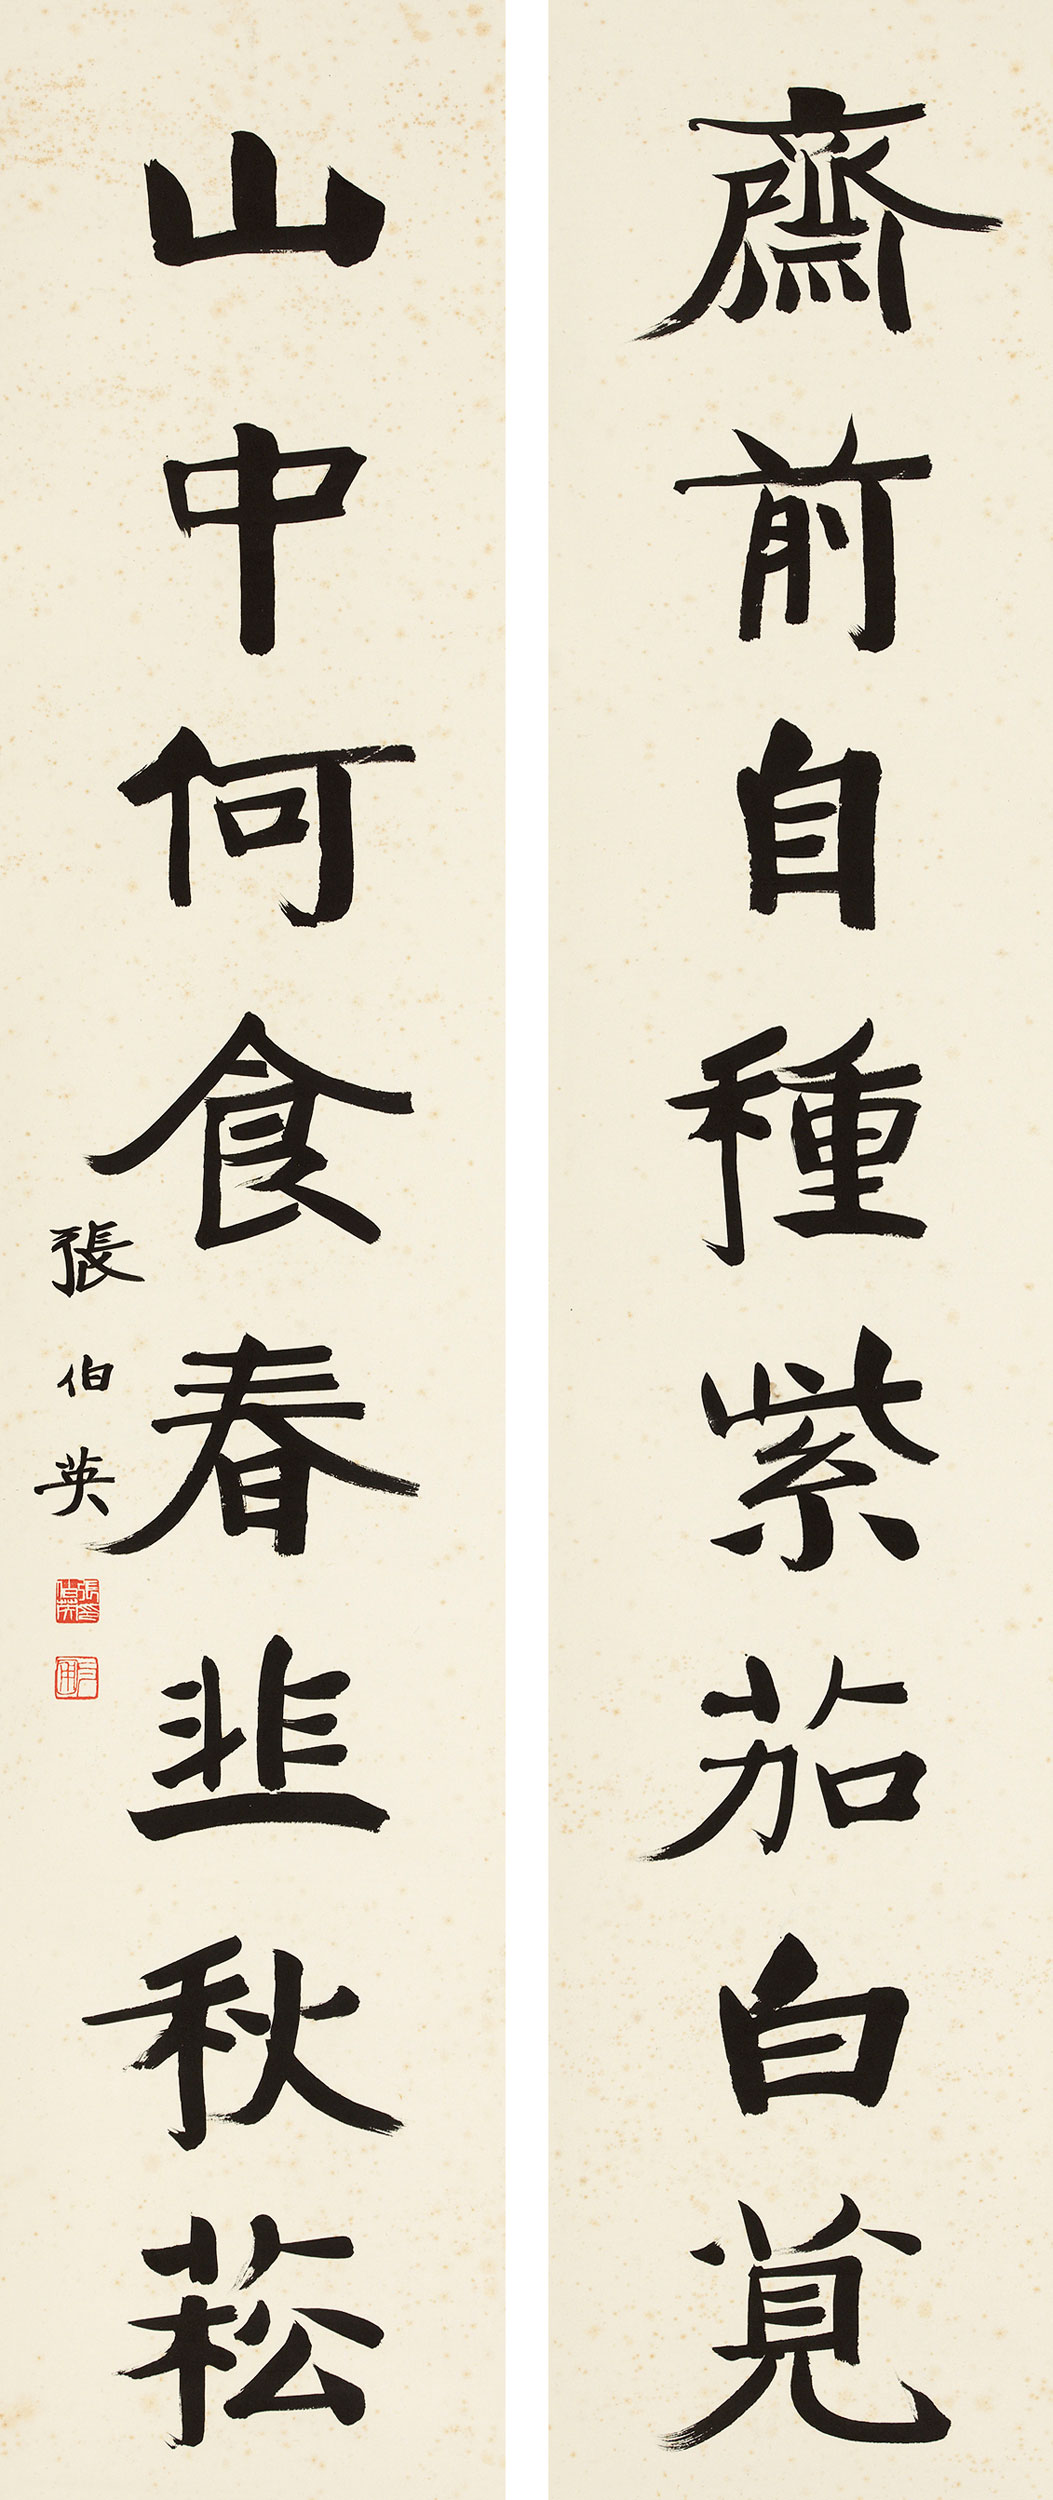 齋前自種紫茄白莧
山中何食春韭秋菘
張伯英
張伯英印